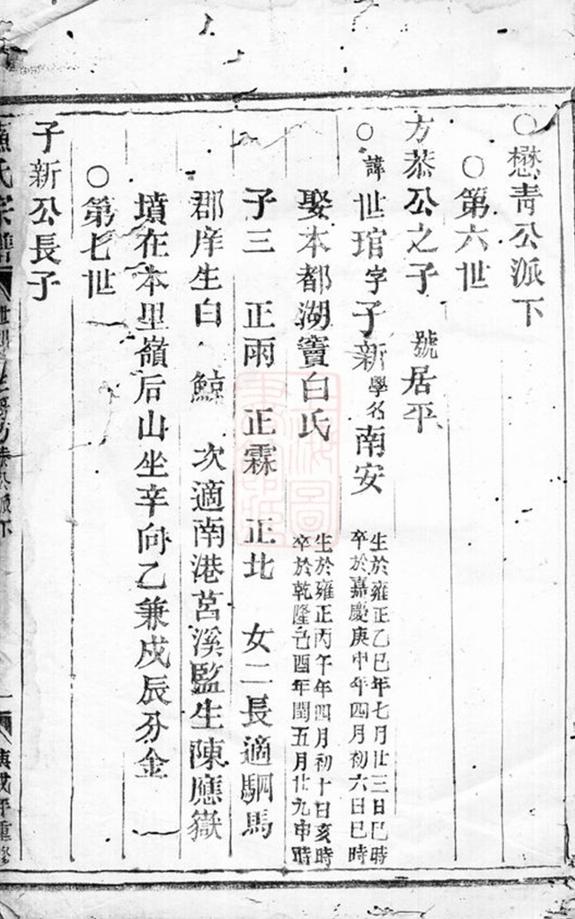 ○懋青公派下
○第六世
方恭公之子　號居平
○諱世琯字子新學名南安
生於雍正乙巳年七月廿三日巳時
卒於嘉慶庚申年四月初六日巳時
娶本都湖竇白氏
生於雍正丙午年四月初十日亥時
卒於乾隆己酉年閏五月廿九申時
子三　正雨　正霖　正北　女二長適駟馬
郡庠生白　鯨　次適南港莒溪監生陳應嶽
墳在本里嶺后山坐辛向乙兼戍辰分金
○第七世
子新公長子
氏宗譜
派下
庚戌年重修